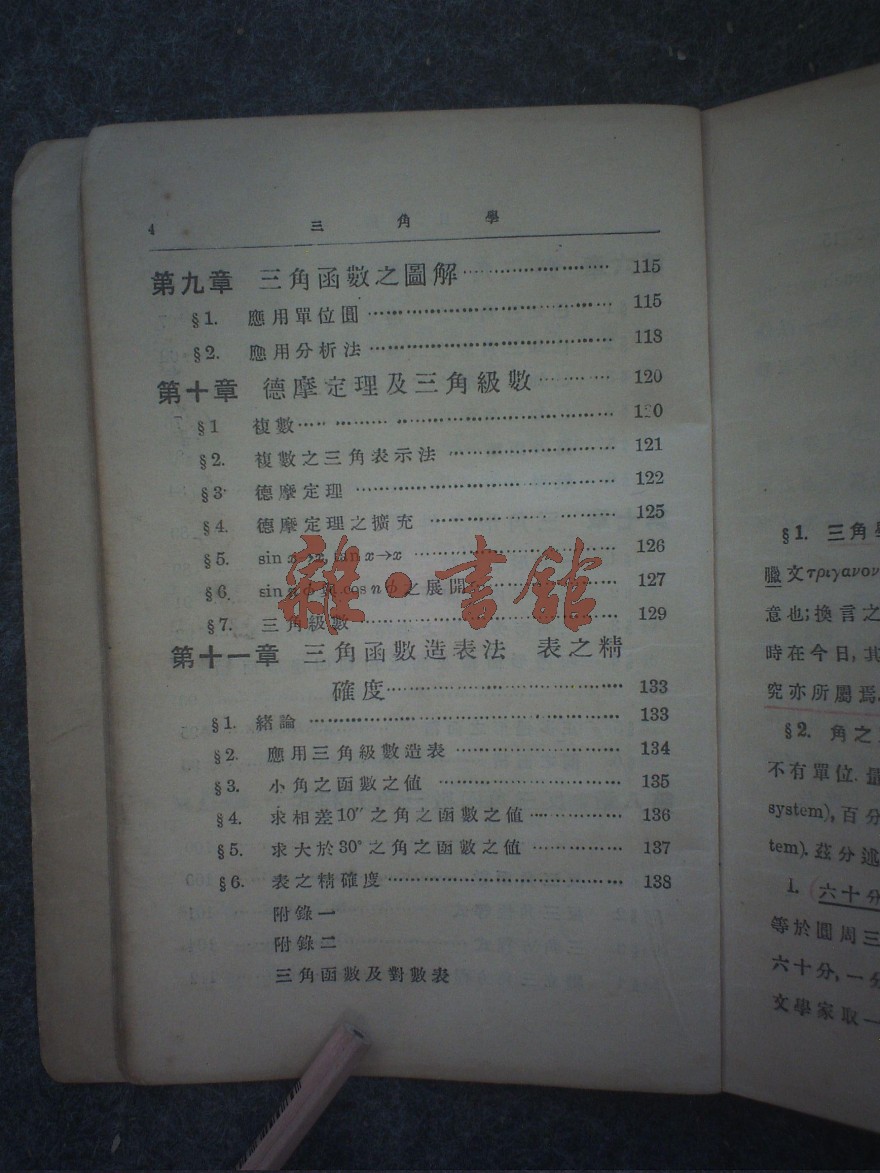 4 三角學
第九章 三角函數之圖解 115
§1. 應用單位圓 115
§2. 應用分析法 118
第十章 德摩定理及三角級數 120
§1 複數 120
§2. 複數之三角表示法 121
§3 德摩定理 122
§4. 德摩定理之擴充 125
§5. sin x→x, tan x→x 126
§6 sin nϕ與 cos nϕ之展開 127
§7. 三角級數 129
第十一章 三角函數造表法 表之精
確度 133
§1. 緒論 133
§2. 應用三角級數造表 134
§3. 小角之函數之值 135
§4. 求相差10″之角之函數之值 136
§5. 求大於30°之角之函數之值 137
§6. 表之精確度 138
附錄一
附錄二
三角函數及對數表
雜·書館
§1. 三角學
臘文τριγανον
意也;換言之
時在今日,其
究亦所屬焉.
§2. 角之
不有單位.量
system),百分
tem).茲分述
1. (六十分
等於圓周三
六十分,一分
文學家取一